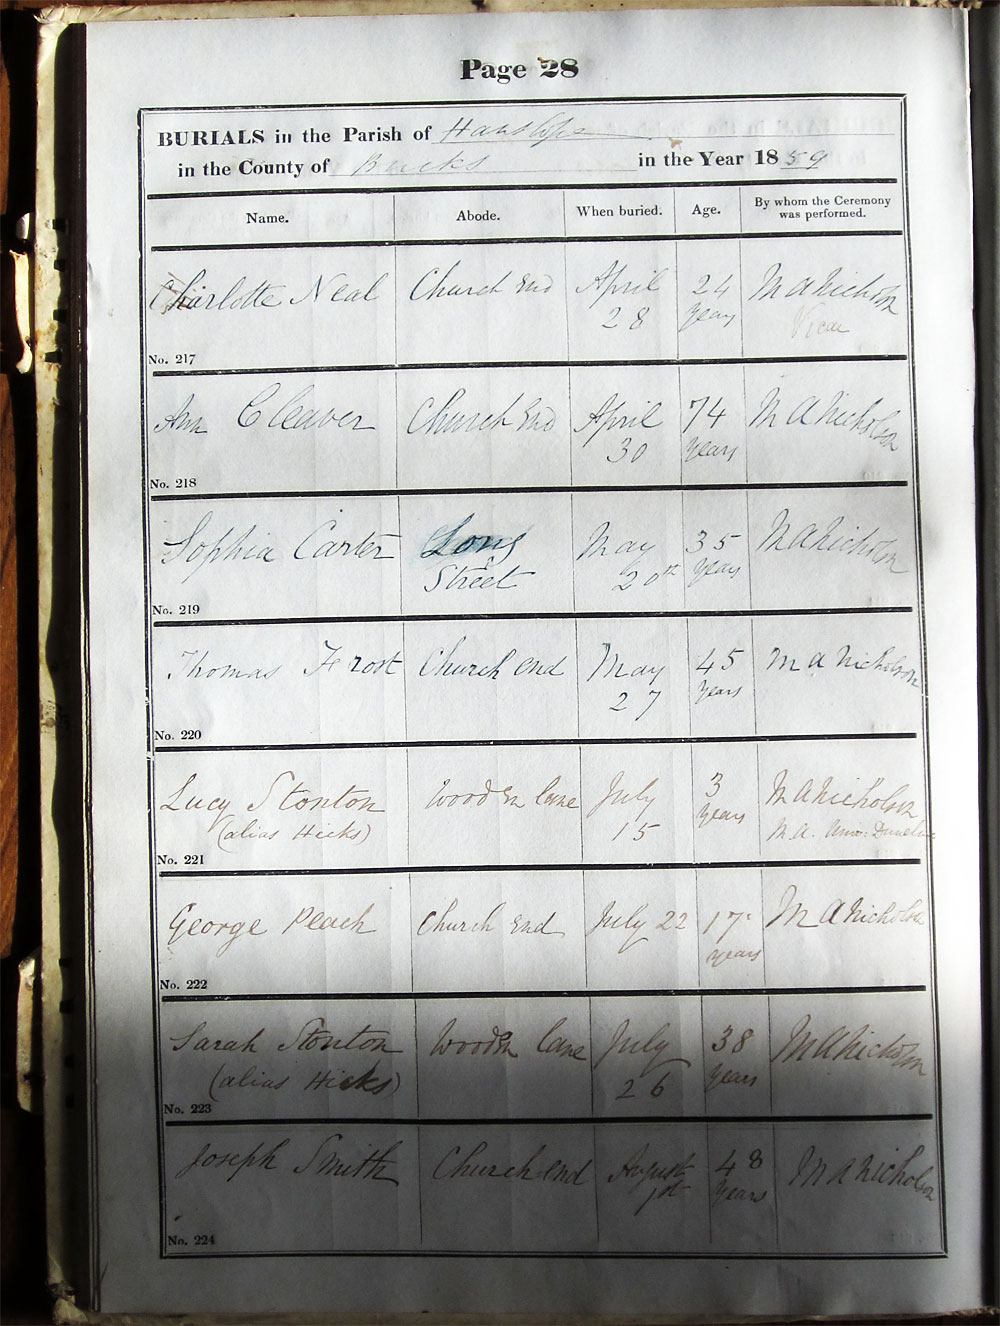 Page 28
BURIALS in the Parish of Hanslope
in the County of Bucks in the Year 1859
Name. Abode. When buried. Age. By whom the Ceremony
was performed.
Charlotte Neal Church End April 24 M A Nicholson
28 years Vicar
No. 217
Ann Cleaver Church End April 74 M A Nicholson
30 years
No. 218
Sophia Carter Long May 35 M A Nicholson
Street 20th years
No. 219
Thomas Frost Church end May 45 M A Nicholson
27 years
No. 220
Lucy Stonton Wooden lane July 3 M A Nicholson
(alias Hicks) 15 years M.A. Univ: Dunelm
No. 221
George Peach Church End July 22 17 M A Nicholson
years
No. 222
Sarah Stonton Wooden lane July 38 M A Nicholson
(alias Hicks) 26 years
No. 223
Joseph Smith Church end August 48 M A Nicholson
1st years
No. 224